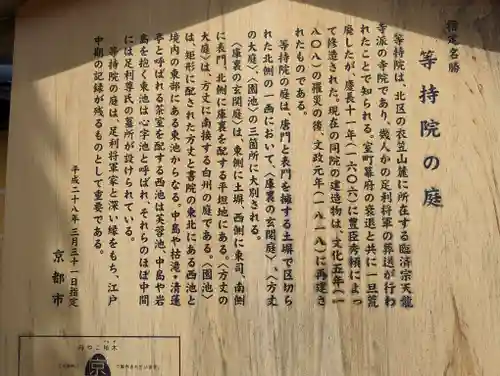 指定名勝
等持院の庭
等持院は、北区の衣笠山麓に所在する臨済宗天龍
寺派の寺院であり、幾人かの足利将軍の葬送が行わ
れたことで知られる。室町幕府の衰退と共に一旦荒
廃したが、慶長十一年(一六〇六)に豊臣秀頼によっ
て修造された。現在の同院の建造物は、文化五年(一
八〇八)の罹災の後、文政元年(一八一八)に再建さ
れたものである。
等持院の庭は、唐門と表門を擁する土塀で区切ら
れた北側の一画において、〈庫裏の玄関庭〉、〈方丈
の大庭〉、〈園池〉の三箇所に大別される。
〈庫裏の玄関庭〉は、東側に土塀、西側に東司、南側
に表門、北側に庫裏を配する平坦地にある。〈方丈の
大庭〉は、方丈に南接する白州の庭である。〈園池〉
は、矩形に配された方丈と書院の東北にある西池と
境内の東部にある東池からなる。中島や枯滝・清蓮
亭と呼ばれる茶室を配する西池は芙蓉池、中島や岩
島を抱く東池は心字池と呼ばれ、それらのほぼ中間
には足利尊氏の墓所が設けられている。
等持院の庭は、足利将軍家と深い縁をもち、江戸
中期の記録が残るものとして重要である。
平成二十八年三月三十一日指定
京都市
京